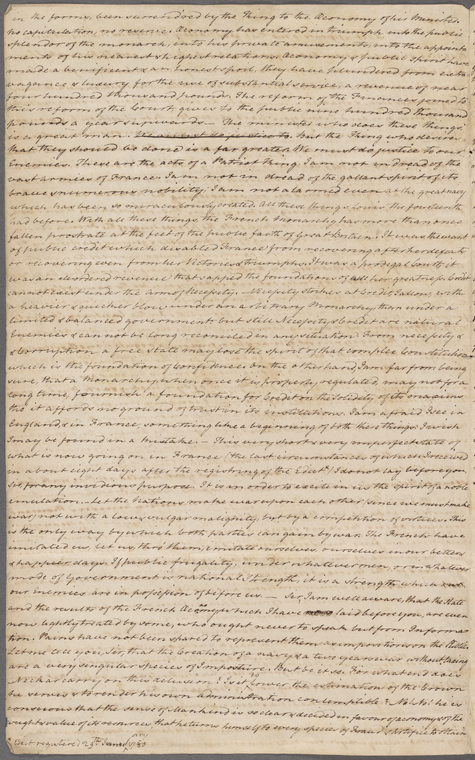 in the forms, been surrendred by the King to the Oeconomy of his Minister.
no capitulation, no reserve. Oeconomy has entered in triumph into the public
splendor of the monarch, into his private amusements, into the appoint-
ments of his nearest & highest relations. Oeconomy & public spirit have
made a beneficent & an honest spoil; they have plundered from extra-
vagance & luxury for the use of substantial service, a revenue of near
four hundred thousand pounds. The reform of the Finances, joined to
this reform of the Court, gives to the public nine hundred thousand
pounds a year & upwards. — The minister who does these things
is a great man. But the King who desires
that they should be done is a far greater. We must do justice to our
Enemies. These are the acts of a Patriot King. I am not in dread of the
vast armies of France: I am not in dread of the gallant spirit of its
brave & numerous nobility. I am not alarmed even at the great navy
which has been so miraculously created. All these things Louis the fourteenth
had before. With all these things the French Monarchy has more than once
fallen prostrate at the feet of the public faith of Great Britain. It was the want
of public credit which disabled France from recovering after her defeats,
or recovering even from her Victories & triumphs. It was a prodigal Court, it
was an disordered revenue that sapped the foundations of all her greatness. Credit
cannot exist under the arm of Necessity. Necessity strikes at Credit I allow with
a heavier & quicker blow under an arbitrary Monarchy, than under a
limited & balanced government: but still Necessity & Credit are natural
Enemies, & cannot be long reconciled in any situation. From necessity &
& corruption a free State may lose the spirit of that complex Constitution
which is the foundation of Confidence. On the other hand I am far from being
sure, that a Monarchy when once it is properly regulated may not for a
long time, furnish a foundation for Credit on the Solidity of its maxims
tho' it affords no ground of trust in its institutions. I am afraid I see in
England, & in France, something like a beginning of both these things. I wish
I may be found in a mistake. — This very short & very imperfect state of
what is now going on in France (the last circumstances of which I received
in about eight days after the registring of the Edict) I do not lay before you
Sir for any invidious purpose. It is in order to excite in us the spirit of a noble
emulation. Let the Nations make war upon each other, since we must make
war, not with a low & vulgar malignity, but by a competition of virtues. This
is the only way by which both parties can gain by war. The French have
imitated us: let us, thro' them, imitate ourselves, ourselves in our better
& happier days. If public frugality, under whatever men, or in whatever
mode of Government is national strength, it is a strength, which
our Enemies are in possession of before us. — Sir, I am well aware, that the State
and the results of the French Oeconomy which I have laid before you, are even
now lightly treated by some, who ought never to speak but from Informa-
tion. Pains have not been spared to represent them as impositions on the Public.
Let me tell you, Sir, that the Creation of a navy & a two years war without taxing
are a very singular species of Imposture. But be it so. For what end does
Neckar carry on this delusion? Is it to lower the estimation of the Crown
he serves, & to render his own administration contemptible? No! No! he is
conscious that the sense of Mankind is so clear & decided in favour of oeconomy & of the
weight & value of its resources, that he turns himself to every species of fraud & artifice to obtain